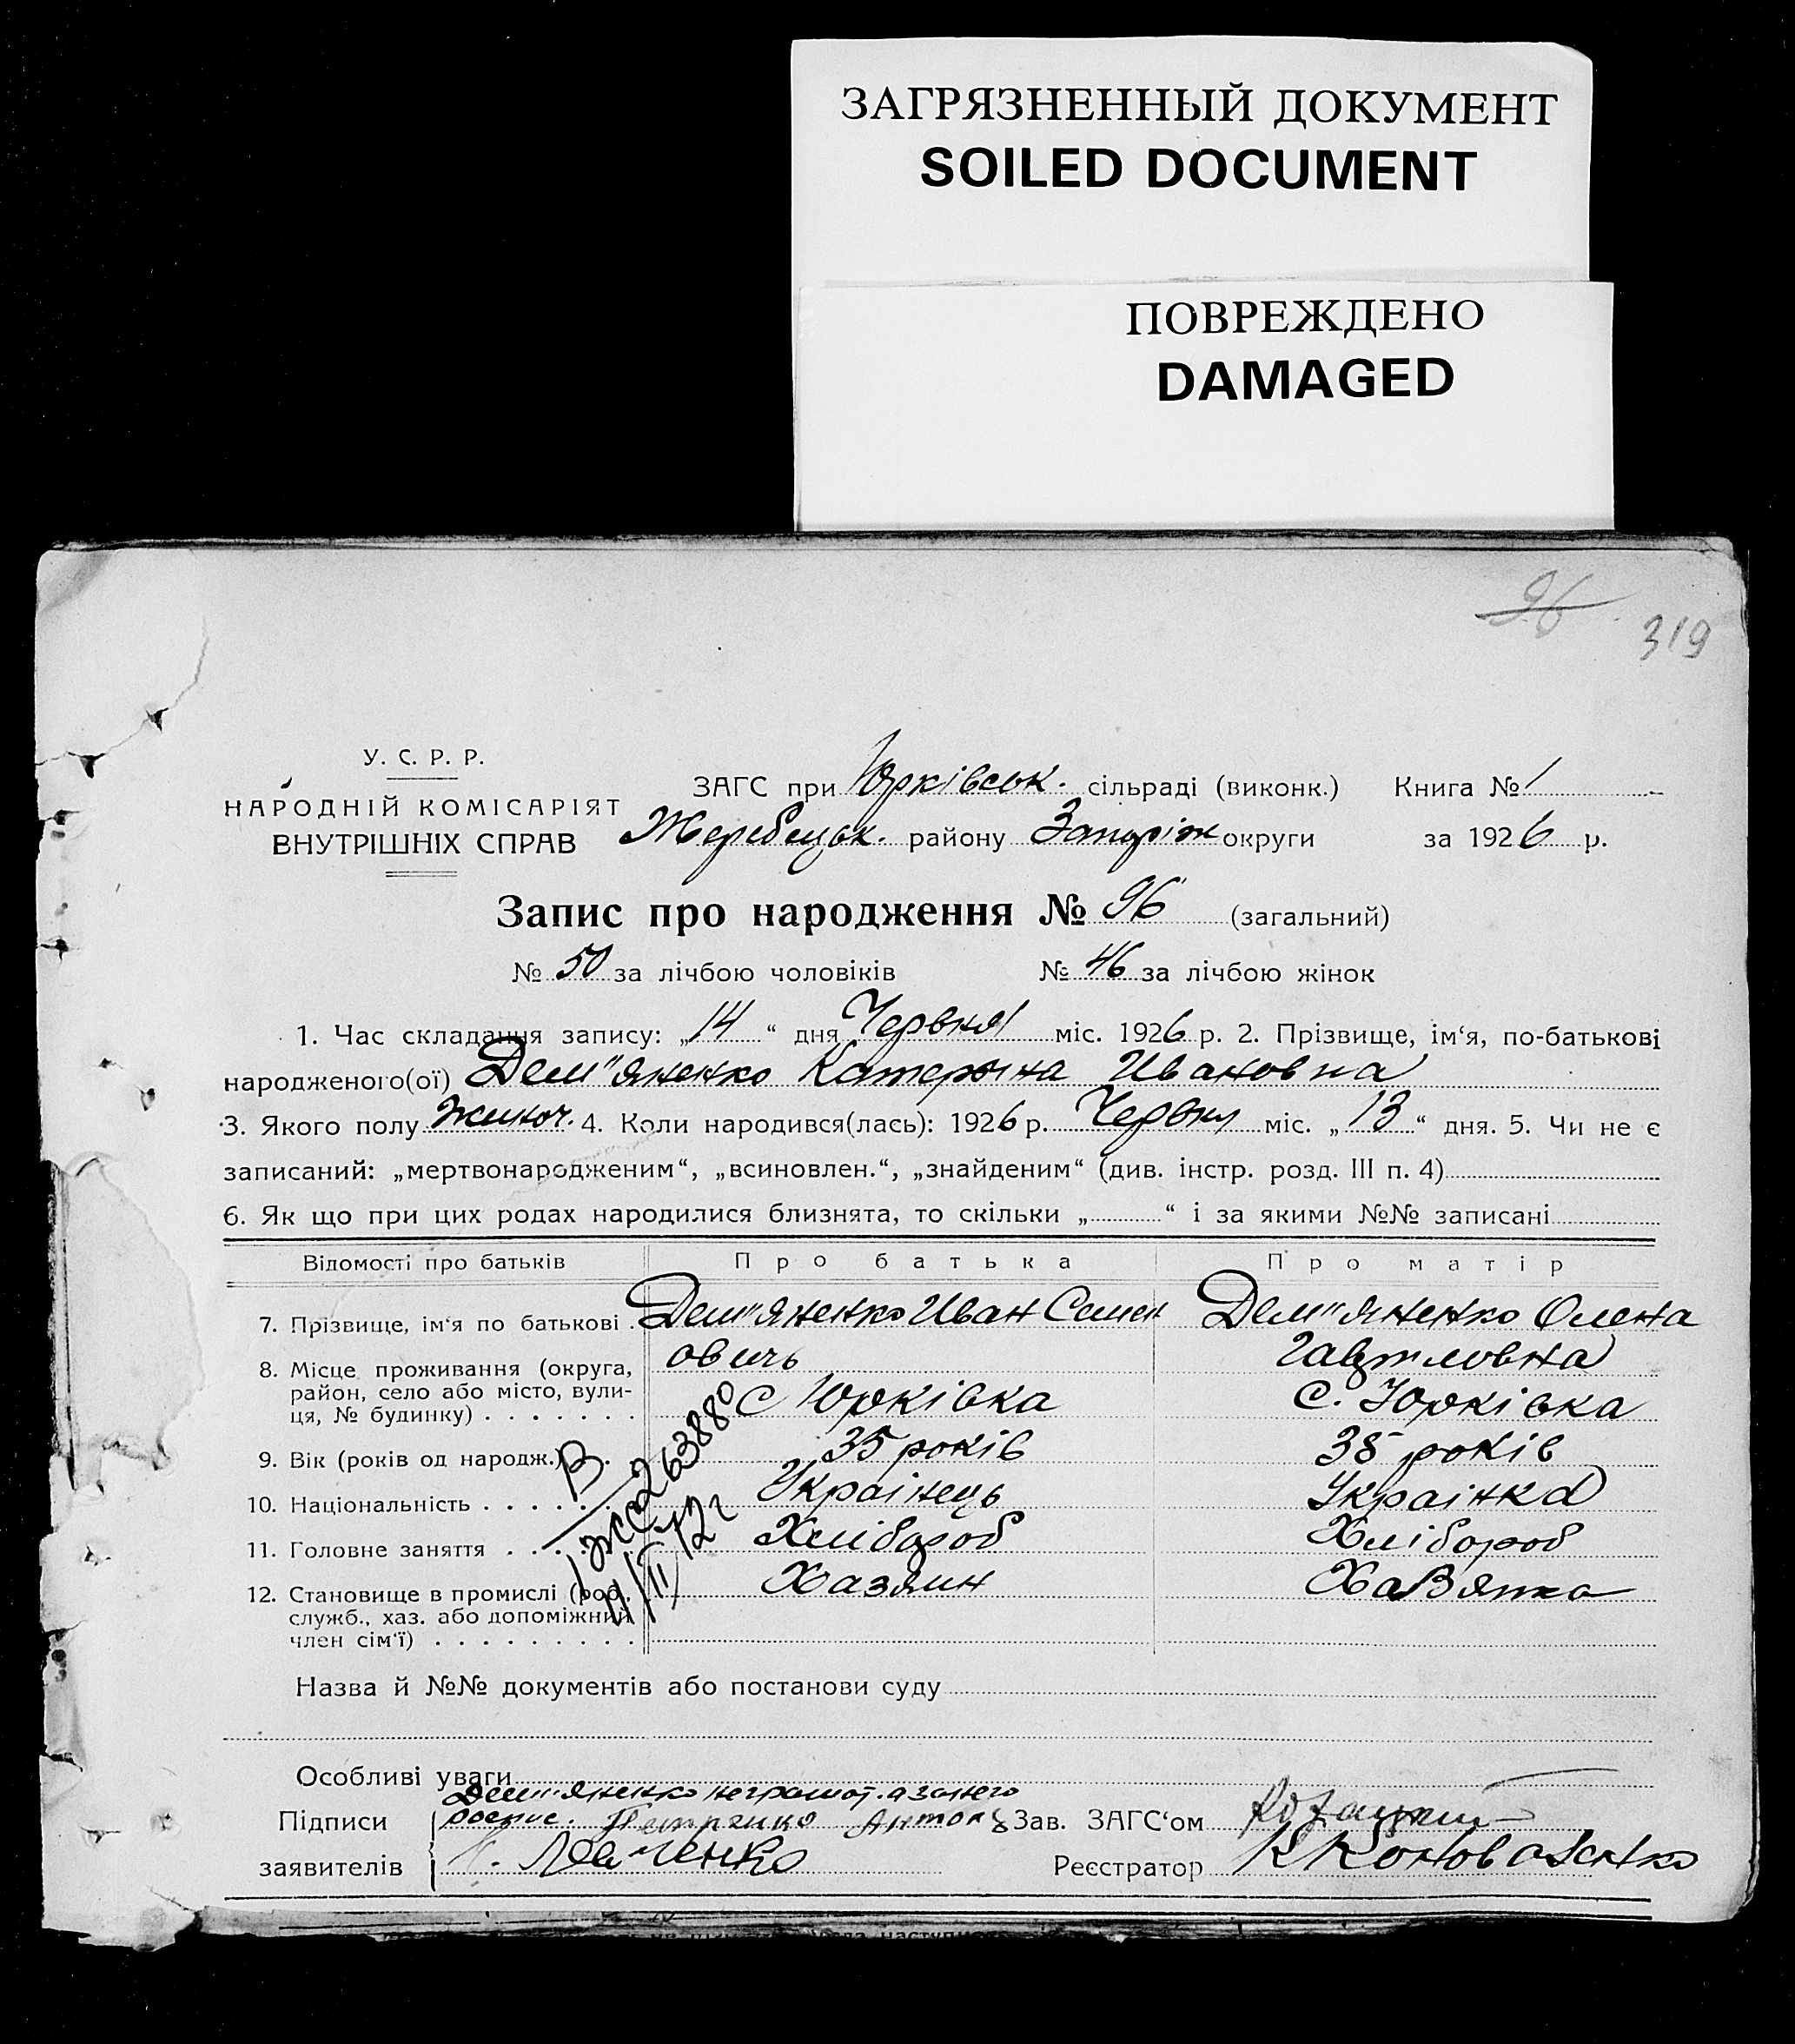 ЗАГРЯЗНЕННЫЙ ДОКУМЕНТ
SOILED DOCUMENT
ПОВРЕЖДЕНО
DAMAGED
96
319
У. С. Р. Р.
НАРОДНІЙ КОМІСАРІЯТ
ВНУТРІШНІХ СПРАВ
ЗАГС при Юрківськ. сільраді (виконк.) Книга № 1
Жеребецьк. району Запоріж округи за 1926 р.
Запис про народження № 96 (загальний)
№ 50 за лічбою чоловіків № 46 за лічбою жінок
1. Час складання запису: „14“ дня Червня міс. 1926 р. 2. Прізвище, ім‘я, по-батькові
народженого(ої) Дем"яненко Катерина Ивановна
3. Якого полу жиноч. 4. Коли народився(лась): 1926 р. Червня міс. „13“ дня. 5. Чи не є
записаний: „мертвонародженим“, „всиновлен.“, „знайденим“ (див. інстр. розд. III п. 4)
6. Як що при цих родах народилися близнята, то скільки „ “ і за якими №№ записані
Відомості про батьків Про батька Про матір
7. Прізвище, ім‘я по батькові . Дем"яненко Иван Семен Дем"яненко Олена
овичь
8. Місце проживання (округа,
район, село або місто, вули-
ця, № будинку) . . . . . . . с Юрківка с. Юрківка
9. Вік (років од народж.) . . 35 років 38 років
10. Національність . . . . . . Українець Українка
11. Головне заняття . . . . . Хлібороб Хлібороб
12. Становище в промислі (роб.,
служб., хаз. або допоміжний
член сім‘ї) . . . . . . . . . Хазяин
В
263880
Назва й №№ документів або постанови суду
Особливі уваги
Дем"яненко неграмот. а за него
роспис. Петренко Антон
Підписи
заявителів
Зав. ЗАГС‘ом
Реєстратор К Коноваленко